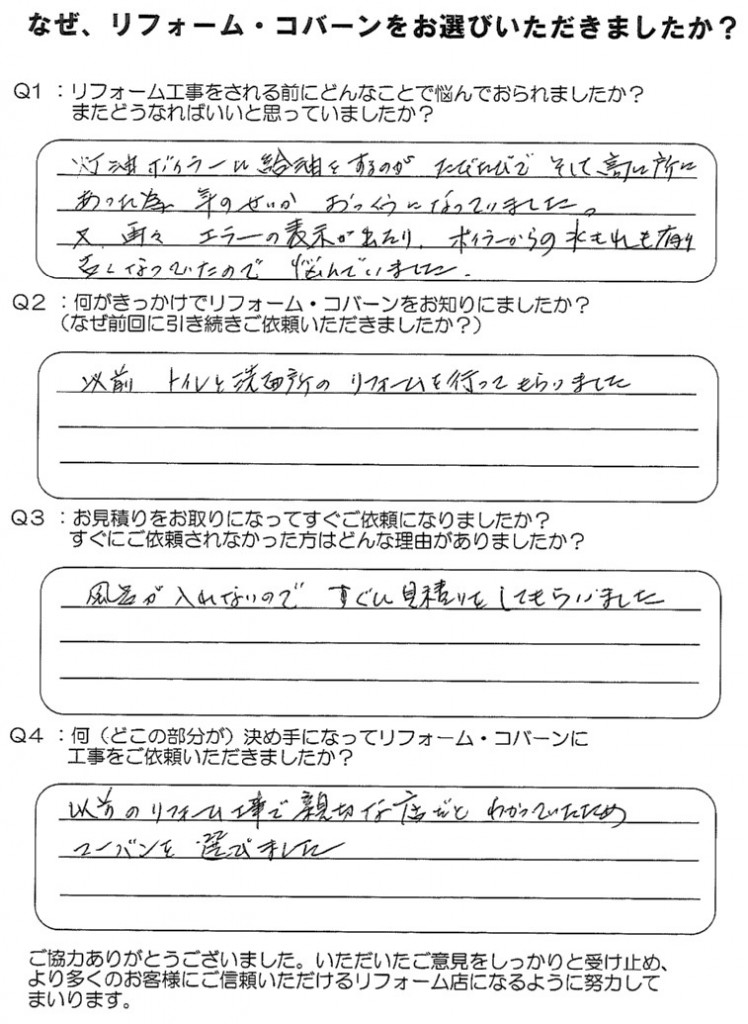 なぜ、リフォーム・コバーンをお選びいただきましたか？
Q1：リフォーム工事をされる前にどんなことで悩んでおられましたか？
またどうなればいいと思っていましたか？
灯油ボイラーに給油をするのが たびたびで そして高い所に
あった為 年のせいか おっくうになっていました。
又、再々 エラーの表示が出たり、ボイラーからの水もれも有り
多くなっていたので 悩んでいました。
Q2：何がきっかけでリフォーム・コバーンをお知りにましたか？
（なぜ前回に引き続きご依頼いただきましたか？）
以前 トイレと洗面所のリフォームを行ってもらいました
Q3：お見積りをお取りになってすぐご依頼になりましたか？
すぐにご依頼されなかった方はどんな理由がありましたか？
風呂が入れないので すぐに見積りをしてもらいました
Q4：何（どこの部分が）決め手になってリフォーム・コバーンに
工事をご依頼いただきましたか？
以前のリフォーム工事で親切な店だと わかっていたため
コーバンを 選びました
ご協力ありがとうございました。いただいたご意見をしっかりと受け止め、
より多くのお客様にご信頼いただけるリフォーム店になるように努力して
まいります。